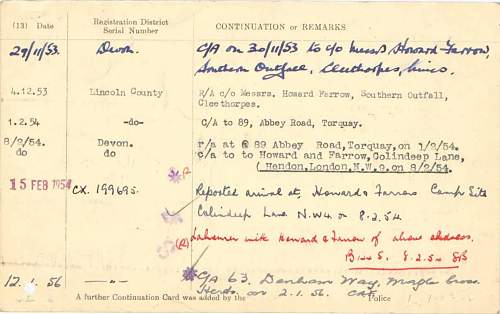 (13) Date Registration District Serial Number CONTINUATION or REMARKS
29/11/53. Devon. C/A on 30/11/53 to c/o Messrs Howard-Farrow,
Southern Outfall, Cleethorpes, Lincs.
4.12.53 Lincoln County R/A c/o Messrs. Howard Farrow, Southern Outfall,
Cleethorpes.
1.2.54 -do- C/A to 89, Abbey Road, Torquay.
8/2/54. Devon. r/a at @ 89 Abbey Road, Torquay, on 1/2/54.
do do c/a to to Howard and Farrow, Colindeep Lane,
( Hendon, London, N.W.9. on 8/2/54.
15 FEB 1954 CX. 199695. R
Reported arrival at, Howard & Farrows Camp Site
Colindeep Lane N.W.4 on 8.2.54.
(R) Labourer with Howard & Farrow of above address.
8.2.54
12.1.56 —"— C/A 63. Denham Way, Maple Cross
Herts. on 2.1.56.
A further Continuation Card was added by the Police